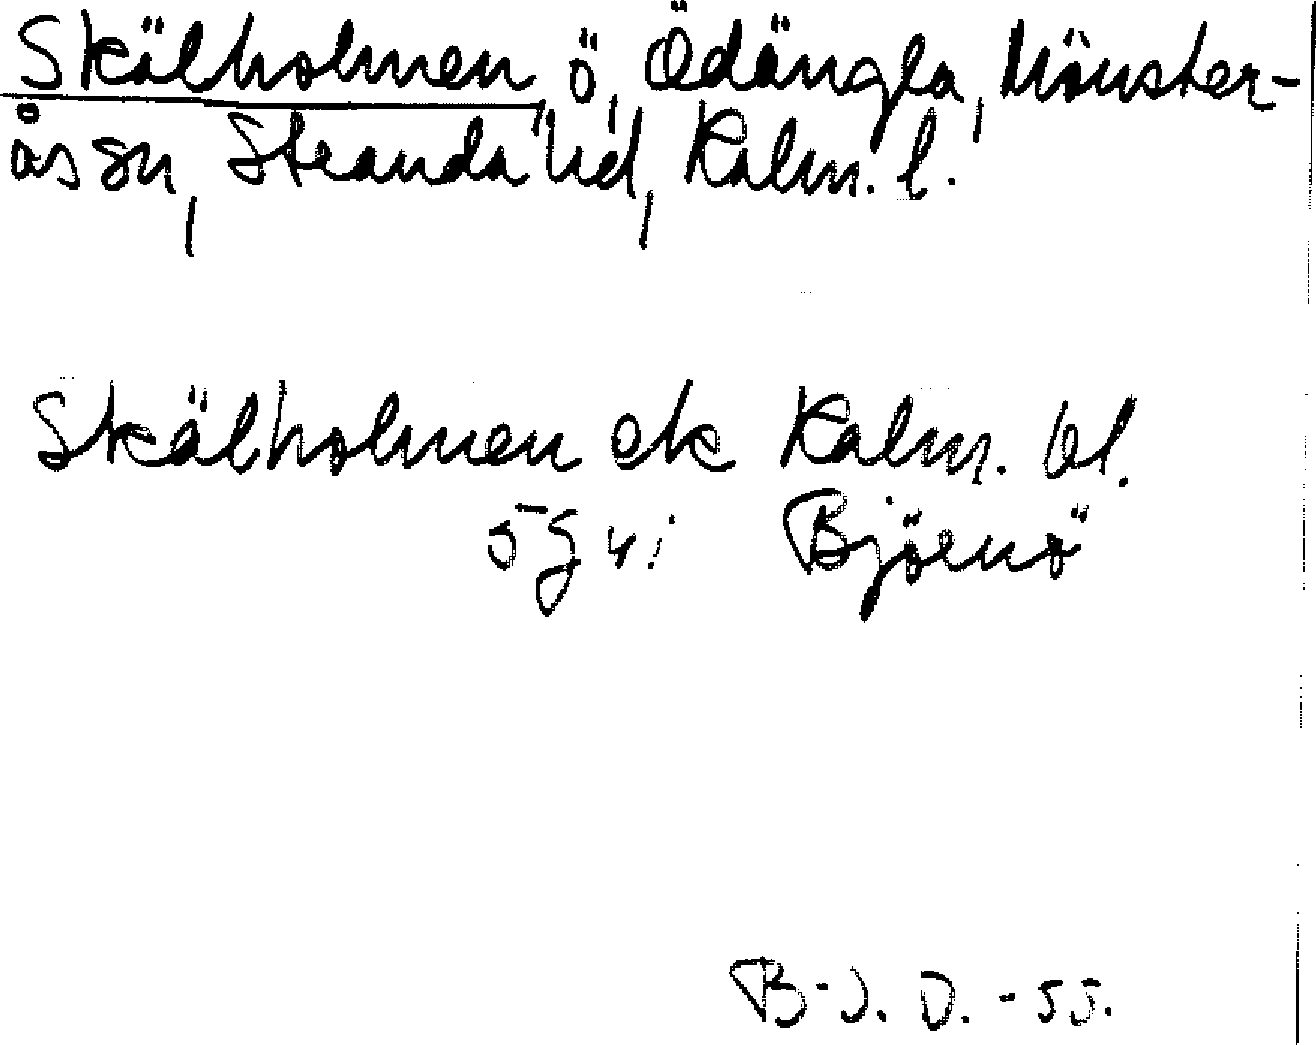 Skälholmen, ö, Ödängla, Mönster-
ås sn, Stranda hd, Kalm. l.
Skälholmen ek Kalm. bl.
5g4i Björnö
B-J. D. -55.